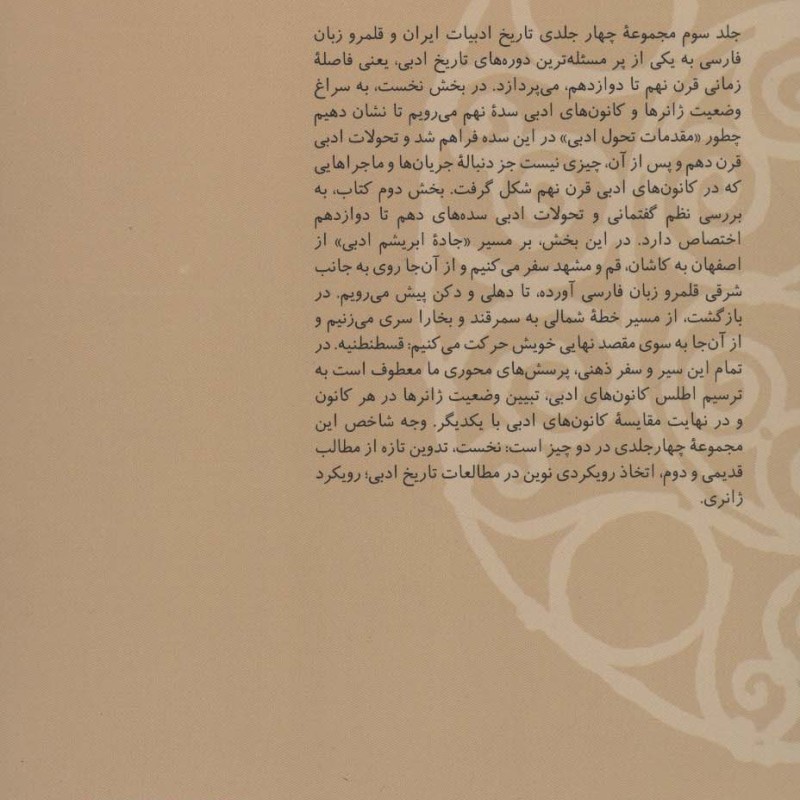 جلد سوم مجموعهٔ چهار جلدی تاریخ ادبیات ایران و قلمرو زبان
فارسی به یکی از پر مسئله‌ترین دوره‌های تاریخ ادبی، یعنی فاصلهٔ
زمانی قرن نهم تا دوازدهم، می‌پردازد. در بخش نخست، به سراغ
وضعیت ژانرها و کانون‌های ادبی سدهٔ نهم می‌رویم تا نشان دهیم
چطور «مقدمات تحول ادبی» در این سده فراهم شد و تحولات ادبی
قرن دهم و پس از آن، چیزی نیست جز دنبالهٔ جریان‌ها و ماجراهایی
که در کانون‌های ادبی قرن نهم شکل گرفت. بخش دوم کتاب، به
بررسی نظم گفتمانی و تحولات ادبی سده‌های دهم تا دوازدهم
اختصاص دارد. در این بخش، بر مسیر «جادهٔ ابریشم ادبی» از
اصفهان به کاشان، قم و مشهد سفر می‌کنیم و از آن‌جا روی به جانب
شرقی قلمرو زبان فارسی آورده، تا دهلی و دکن پیش می‌رویم. در
بازگشت، از مسیر خطهٔ شمالی به سمرقند و بخارا سری می‌زنیم و
از آن‌جا به سوی مقصد نهایی خویش حرکت می‌کنیم: قسطنطنیه. در
تمام این سیر و سفر ذهنی، پرسش‌های محوری ما معطوف است به
ترسیم اطلس کانون‌های ادبی، تبیین وضعیت ژانرها در هر کانون
و در نهایت مقایسهٔ کانون‌های ادبی با یکدیگر. وجه شاخص این
مجموعهٔ چهارجلدی در دو چیز است: نخست، تدوین تازه از مطالب
قدیمی و دوم، اتخاذ رویکردی نوین در مطالعات تاریخ ادبی؛ رویکرد
ژانری.